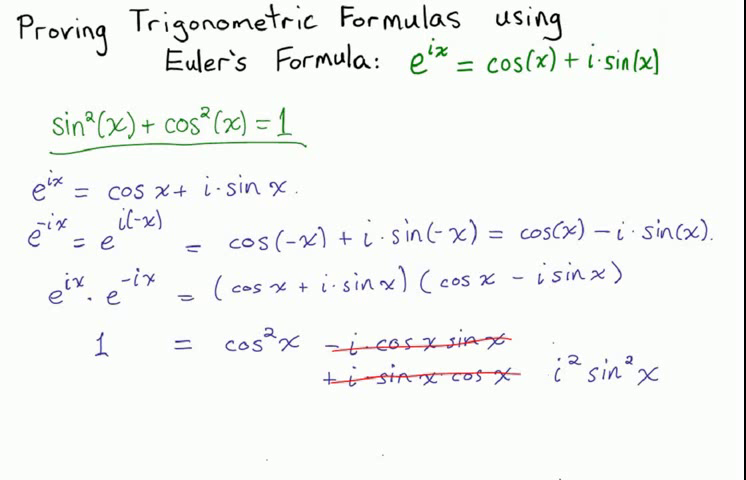 Proving Trigonometric Formulas using
Euler's Formula: e^{ix} = cos(x) + i·sin(x)
sin²(x) + cos²(x) = 1
e^{ix} = cos x + i·sin x.
e^{-ix} = e^{i(-x)} = cos(-x) + i·sin(-x) = cos(x) - i·sin(x).
e^{ix}·e^{-ix} = (cos x + i·sin x)(cos x - i sin x)
1 = cos²x - i·cos x sin x
+ i·sin x cos x i² sin² x